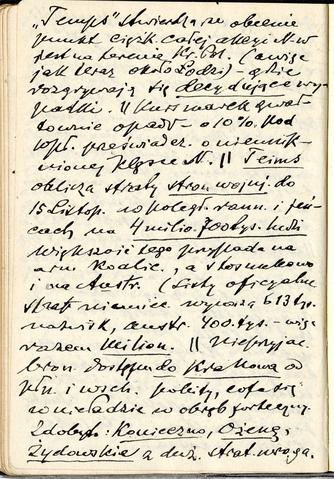 „Temps" stwierdza, że obecnie
punkt ciężk. całej akcyi N-w
jest na terenie Kr. Pol. (a więc
jak teraz około Łodzi) – gdzie
rozgrywają się decydujące wy-
padki. || Kurs marek gwał-
townie opadł o 10%. pod
wpł. przeświadcz. o nieunik-
nionej klęsce N. || Teims
oblicza straty stron wojuj. do
15 Listop. w poległ. rann. i jeń-
cach na 4 milio. 700 tys. ludzi
większość tego przypada na
arm. Koalic., a stosunkowo
i na Austr. (Listy oficyalne
strat niemiec wynoszą 613 tys.
nazwisk, austr. 400. tys. – więc
razem milion. || Nieprzyjac.
bron. dostępu do Krakowa od
płn. i wsch. pobity, cofa się
w nieładzie w obręb forteczny.
Zdobyto: Konieczno,
Żydowskie a duż. strat. wroga.